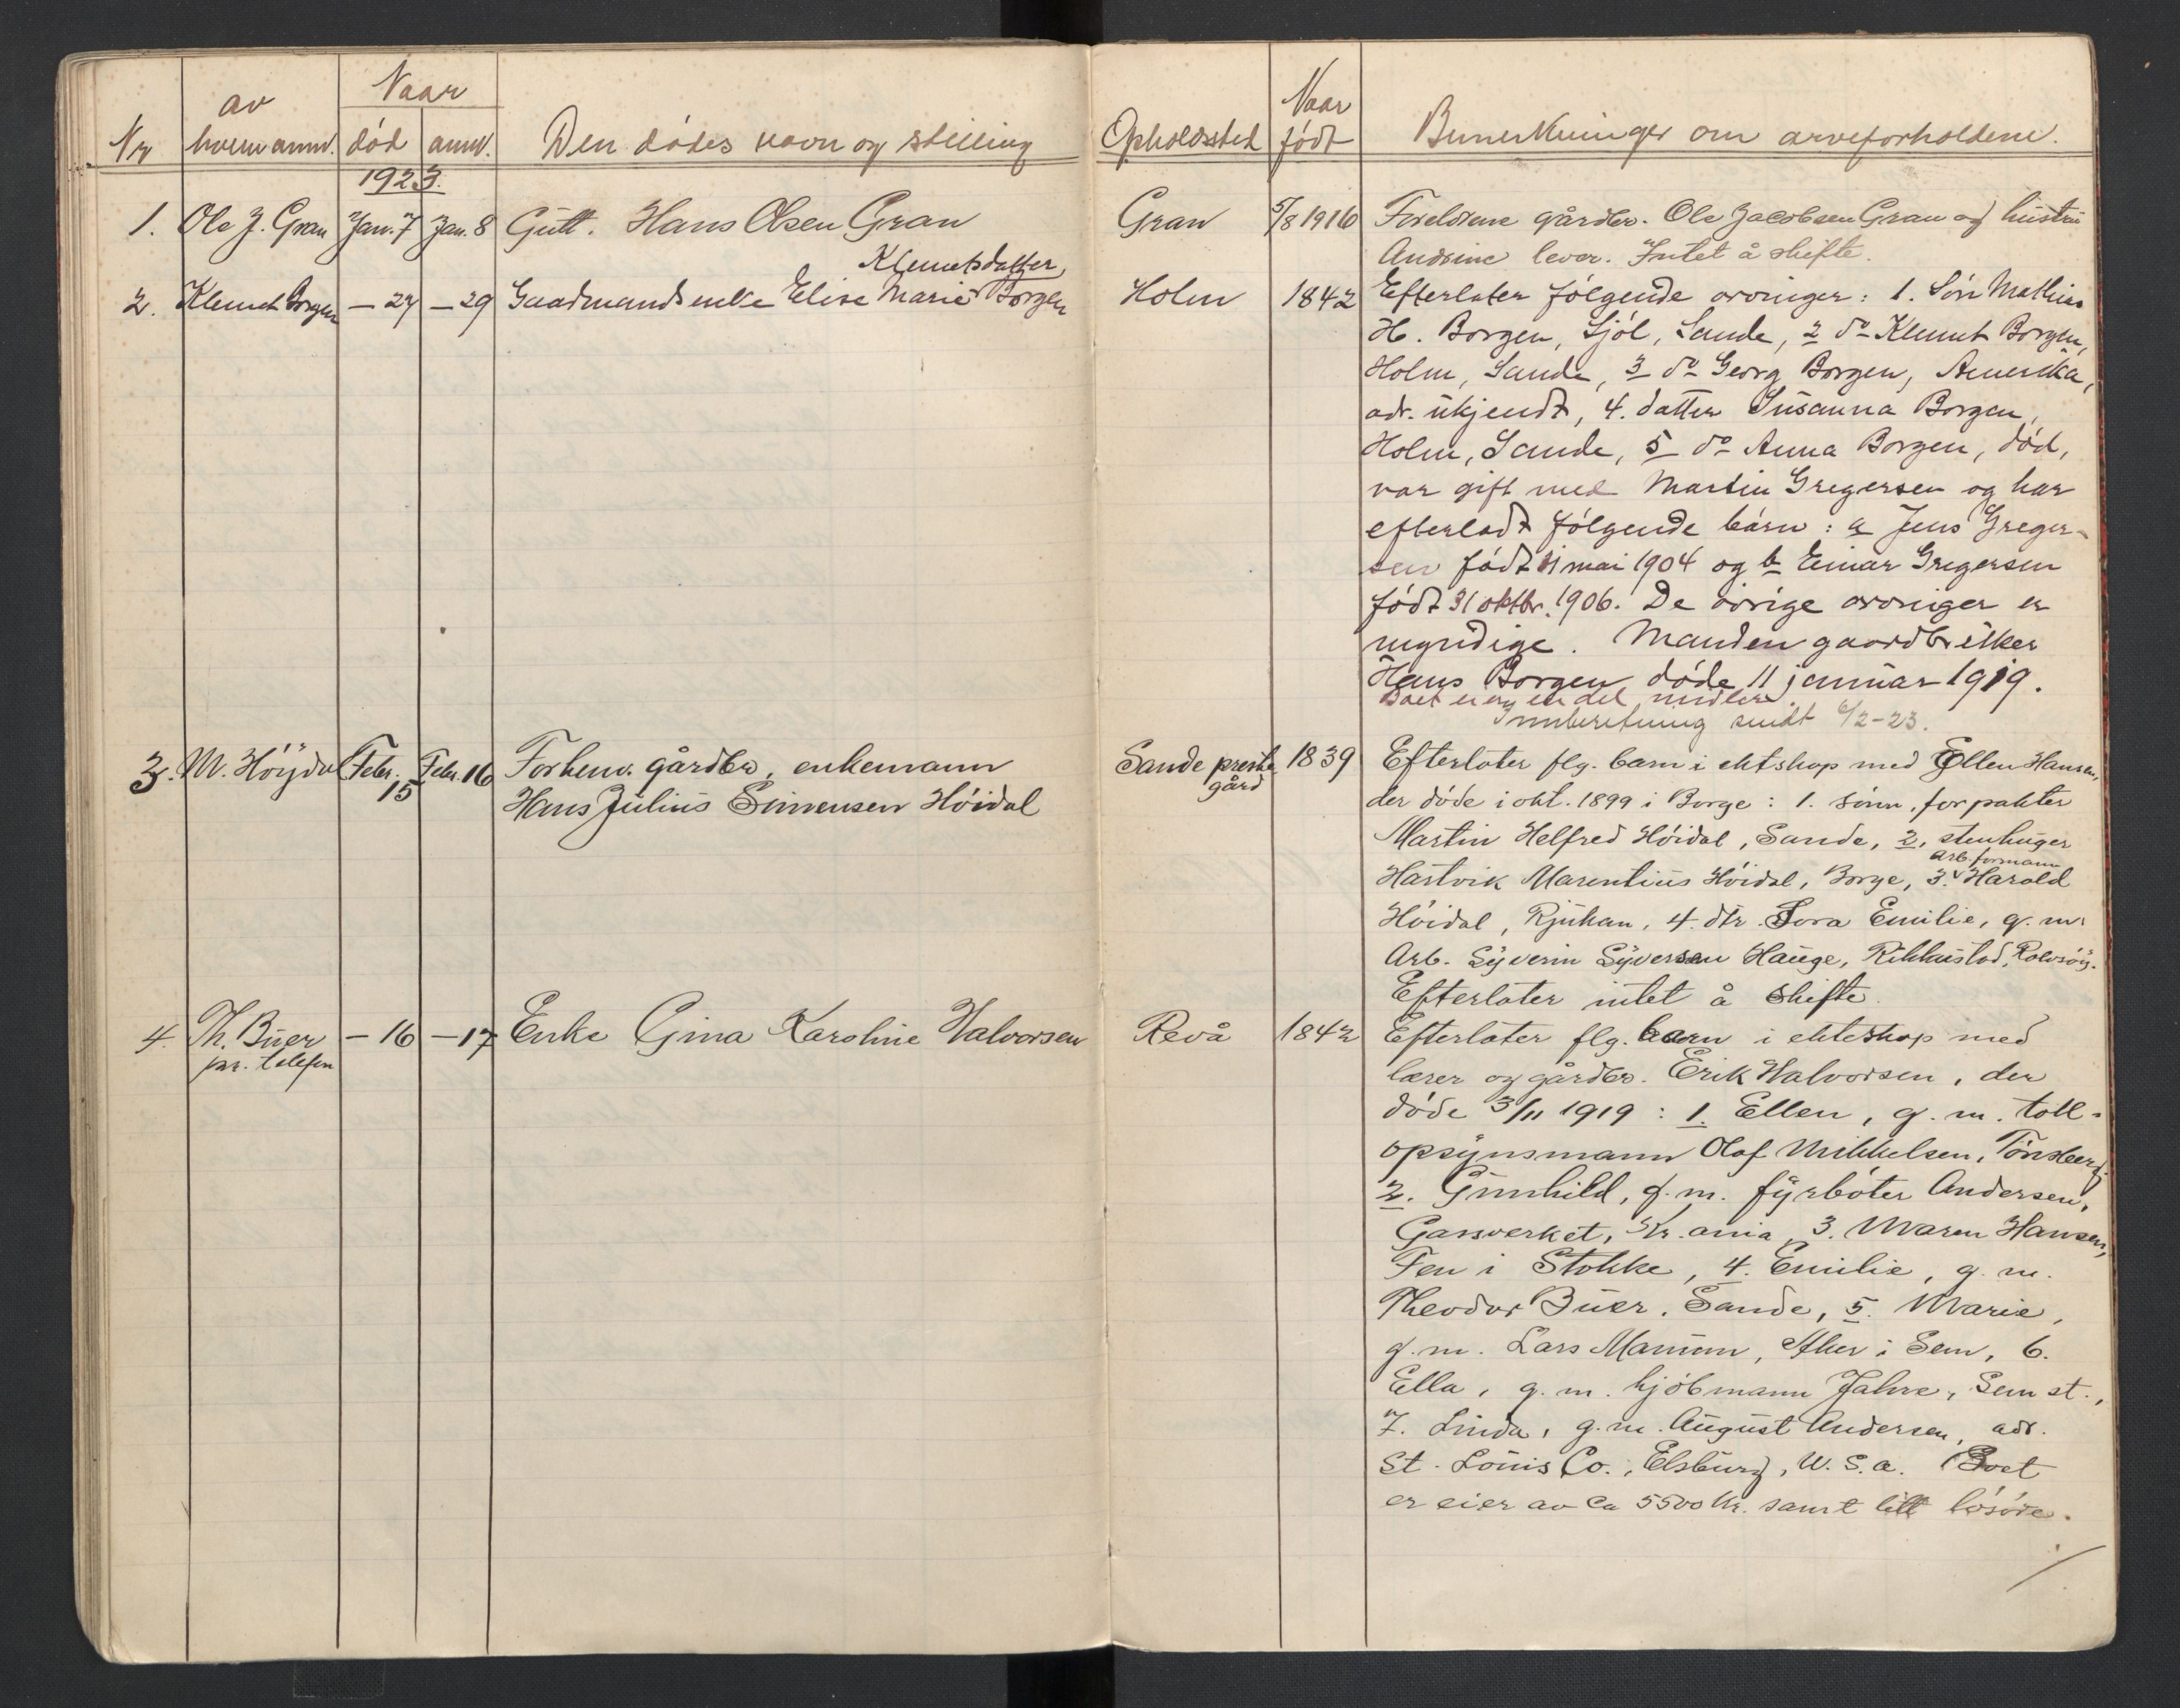 Nr
av hvem anm.
Naar
død
anm.
Den dødes navn og stilling
Opholdssted
Naar født
Bemerkninger om arveforholdene.
1923.
1. Ole J. Gran Jan. 7 Jan. 8 Gutt. Hans Olsen Gran Gran 5/8 1916 Foreldrene gårdbr. Ole Jacobsen Gran og hustru
Andrine lever. Intet å skifte.
Klemetsdatter
2. Klemet Borgen — 27 — 29 Gaardmandsenke Elise Marie Borgen Holm 1842 Efterlater følgende arvinger: 1. Søn Mathias
H. Borgen, Sjöl, Sande, 2 do Klemet Borgen,
Holm, Sande, 3 do Georg Borgen, Amerika,
adr. ukjendt, 4. datter Susanna Borgen,
Holm, Sande, 5 do Anna Borgen, död,
var gift med Martin Gregersen og har
efterladt følgende børn: a Jens Greger-
sen født 11 mai 1904 og b Einar Gregersen
født 31 oktbr. 1906. De øvrige arvinger er
myndige. Manden gaardbruker
Hans Borgen døde 11 januar 1919.
Boet eier en del midler.
Innberetning sendt 6/2-23.
3. M. Höydal Febr. 15 Febr. 16 Forhenv. gårdbr., enkemann Sande preste 1839 Efterlater flg. barn i ektskap med Ellen Hansen,
Hans Julius Simensen Höidal gård der døde i okt. 1899 i Borge: 1. sönn, forpakter
Martin Helfred Höidal, Sande, 2, stenhuger
arb. formann
Hartvik Marentius Höidal, Borge, 3. Harald
Höidal, Rjukan, 4. dtr. Tora Emilie, g. m.
Arb. Syverin Syversen Hauge, Rekkustad, Rolvsöy.
Efterlater intet å skifte.
4. Th. Buer — 16 — 17 Enke Gina Karoline Halvorsen Revå 1842 Efterlater flg. barn i ekteskap med
pr. telefon lærer og gårdbr. Erik Halvorsen, der
døde 3/11 1919: 1. Ellen, g. m. toll-
opsynsmann Olaf Mikkelsen, Tönsberg,
2. Gunhild, g. m. fyrböter Andersen,
Gassverket, Kr.ania, 3. Maren Hansen,
Fen i Stokke, 4. Emilie, g. m.
Theodor Buer, Sande, 5. Marie,
g. m. Lars Manum, Aker i Sem, 6.
Ella, g. m. kjöbmann Jahre, Sem st.,
7. Linda, g. m. August Andersen, adr.
St. Louis Co., Elsburg, U. S. a. Boet
er eier av ca 5500 kr. samt litt lösöre.